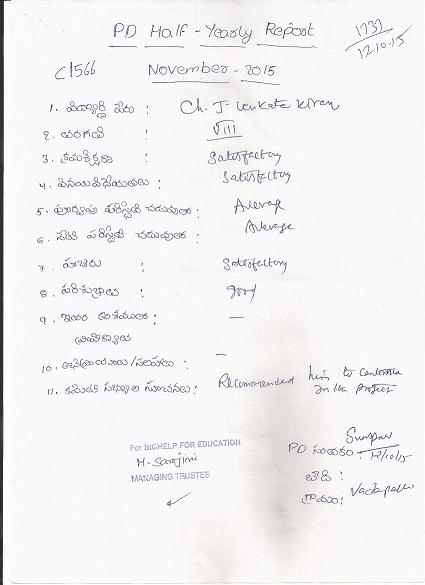 PD Half-Yearly Report
1737
12-10-15
C1566
November-2015
1. విద్యార్థి పేరు : Ch. J Venkata Kiran
2. తరగతి : VIII
3. క్రమశిక్షణ : Satisfactory
4. వినయవిధేయతలు : Satisfactory
5. పూర్వపు పరిస్థితి చదువులో : Average
6. నేటి పరిస్థితి చదువులో : Average
7. హాజరు : Satisfactory
8. పరిశుభ్రత : good
9. ఇతర అంశములలో : —
ప్రావీణ్యాలు
10. అభిప్రాయాలు/సలహాలు : —
11. కమిటి సభ్యుల సూచనలు : Recommended him to continue
in the Project
For BIGHELP FOR EDUCATION
M. Sarojini
MANAGING TRUSTEE
PD సంతకం : 12/10/15
తేది :
గ్రామం :